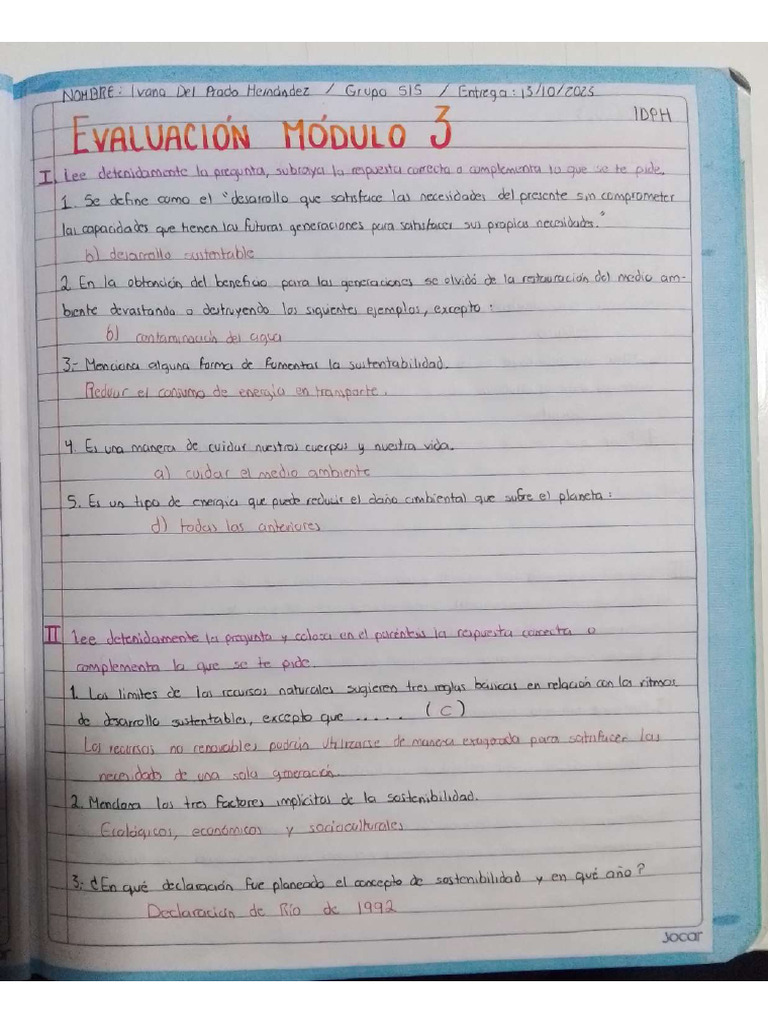 NOMBRE: Ivana Del Prado Hernández / Grupo 515 / Entrega: 13/10/2023
IDPH
EVALUACIÓN MÓDULO 3
I. Lee detenidamente la pregunta, subraya la respuesta correcta o complementa lo que se te pide.
1. Se define como el "desarrollo que satisface las necesidades del presente sin comprometer
las capacidades que tienen las futuras generaciones para satisfacer sus propias necesidades."
b) desarrollo sustentable
2. En la obtención del beneficio para las generaciones se olvidó de la restauración del medio am-
biente devastando o destruyendo los siguientes ejemplos, excepto:
b) contaminación del agua
3.- Menciona alguna forma de fomentar la sustentabilidad.
Reducir el consumo de energia en transporte.
4. Es una manera de cuidar nuestros cuerpos y nuestra vida.
a) cuidar el medio ambiente
5. Es un tipo de energia que puede reducir el daño ambiental que sufre el planeta:
d) todas las anteriores
II Lee detenidamente la pregunta y coloca en el paréntesis la respuesta correcta o
complementa lo que se te pide.
1. Los limites de los recursos naturales sugieren tres reglas básicas en relación con los ritmos
de desarrollo sustentables, excepto que ..... (C)
Los recursos no renovables podrán utilizarse de manera exagerada para satisfacer las
necesidades de una sola generación.
2. Menciona los tres factores implícitos de la sostenibilidad.
Ecológicos, económicos y socioculturales
3.- ¿En qué declaración fue planeado el concepto de sostenibilidad y en qué año?
Declaración de Río de 1992
Jocar